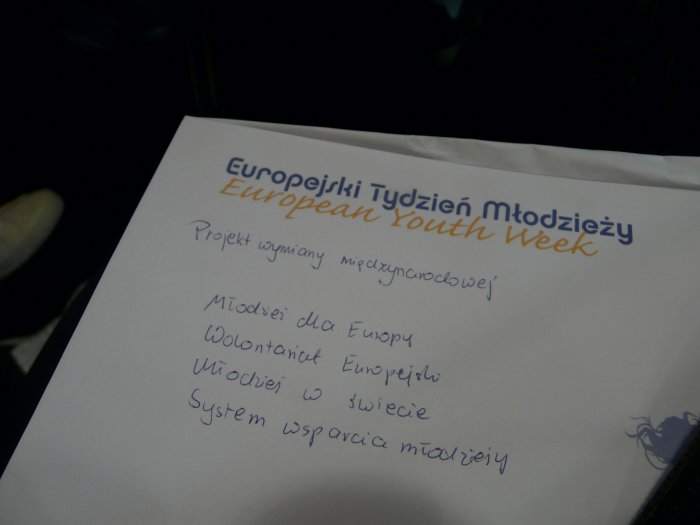 Europejski Tydzień Młodzieży
European Youth Week
Projekt wymiany międzynarodowej
Młodzież dla Europy
Wolontariat Europejski
Młodzież w świecie
System wsparcia młodzieży